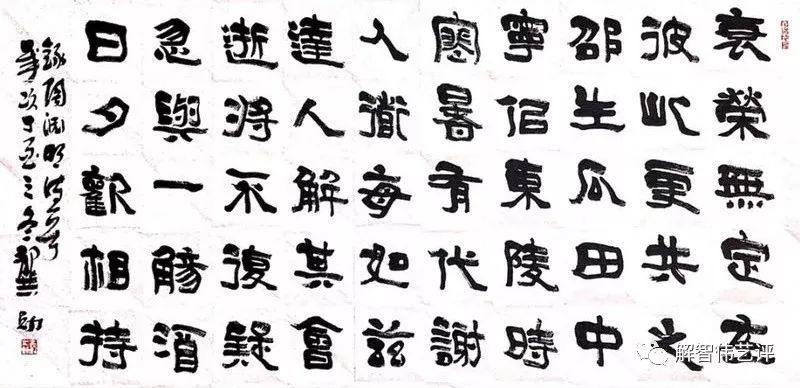 衰榮無定在
彼此更共之
邵生瓜田中
寧佀東陵時
寒暑有代謝
人道每如茲
達人解其會
逝將不復疑
忽與一觴酒
日夕歡相持
錄陶淵明詩一首
歲次丁酉之冬
解智伟艺评